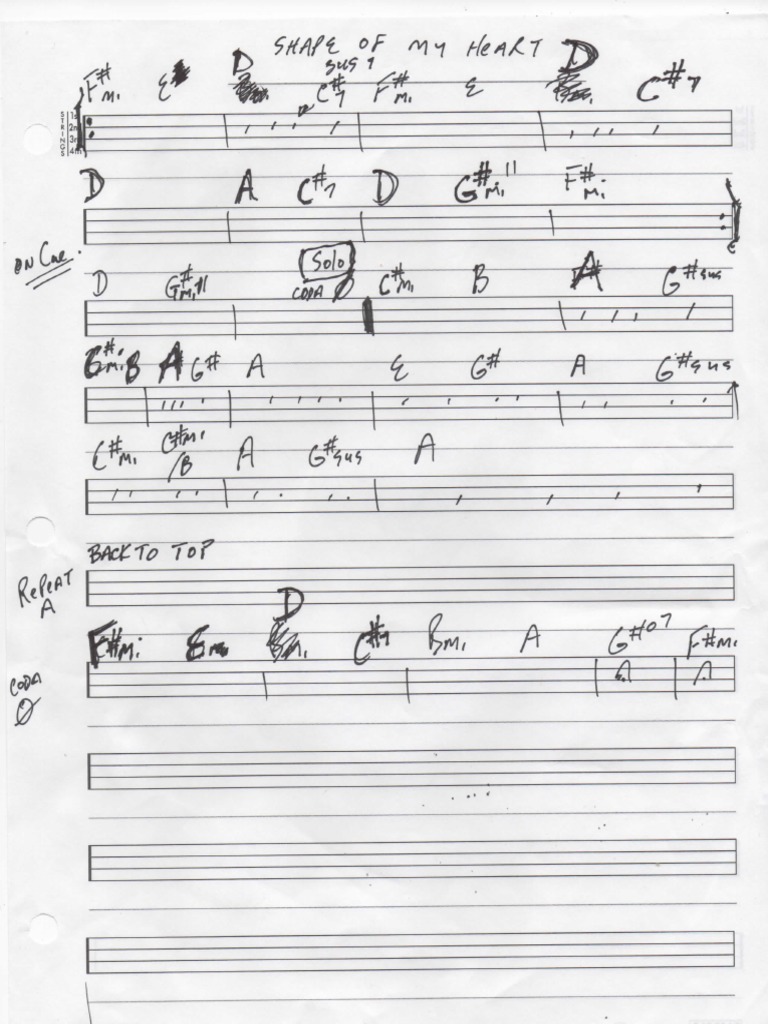 SHAPE OF MY HEART
F#mi E D sus4 C#7 F#mi E D C#7
STRINGS 1st 2nd 3rd 4th
D A C#7 D G#mi11 F#mi
ON CUE.
D G#mi11 Solo CODA C#mi B A G#sus
G#mi B A G# A E G# A G#sus
C#mi C#mi/B A G#sus A
BACK TO TOP
REPEAT A
F#mi D C#7 Bmi A G#o7 F#mi
CODA